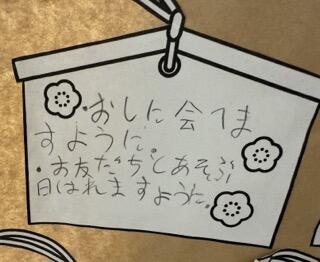 ・おしに会えま
すように。
・お友だちとあそぶ
日はれますように。